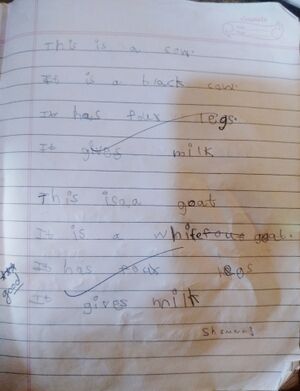 This is a cow.
It is a black cow.
It has four legs.
It gives milk
This is a a goat
It is a white four goat.
It has four legs
good
It gives milk